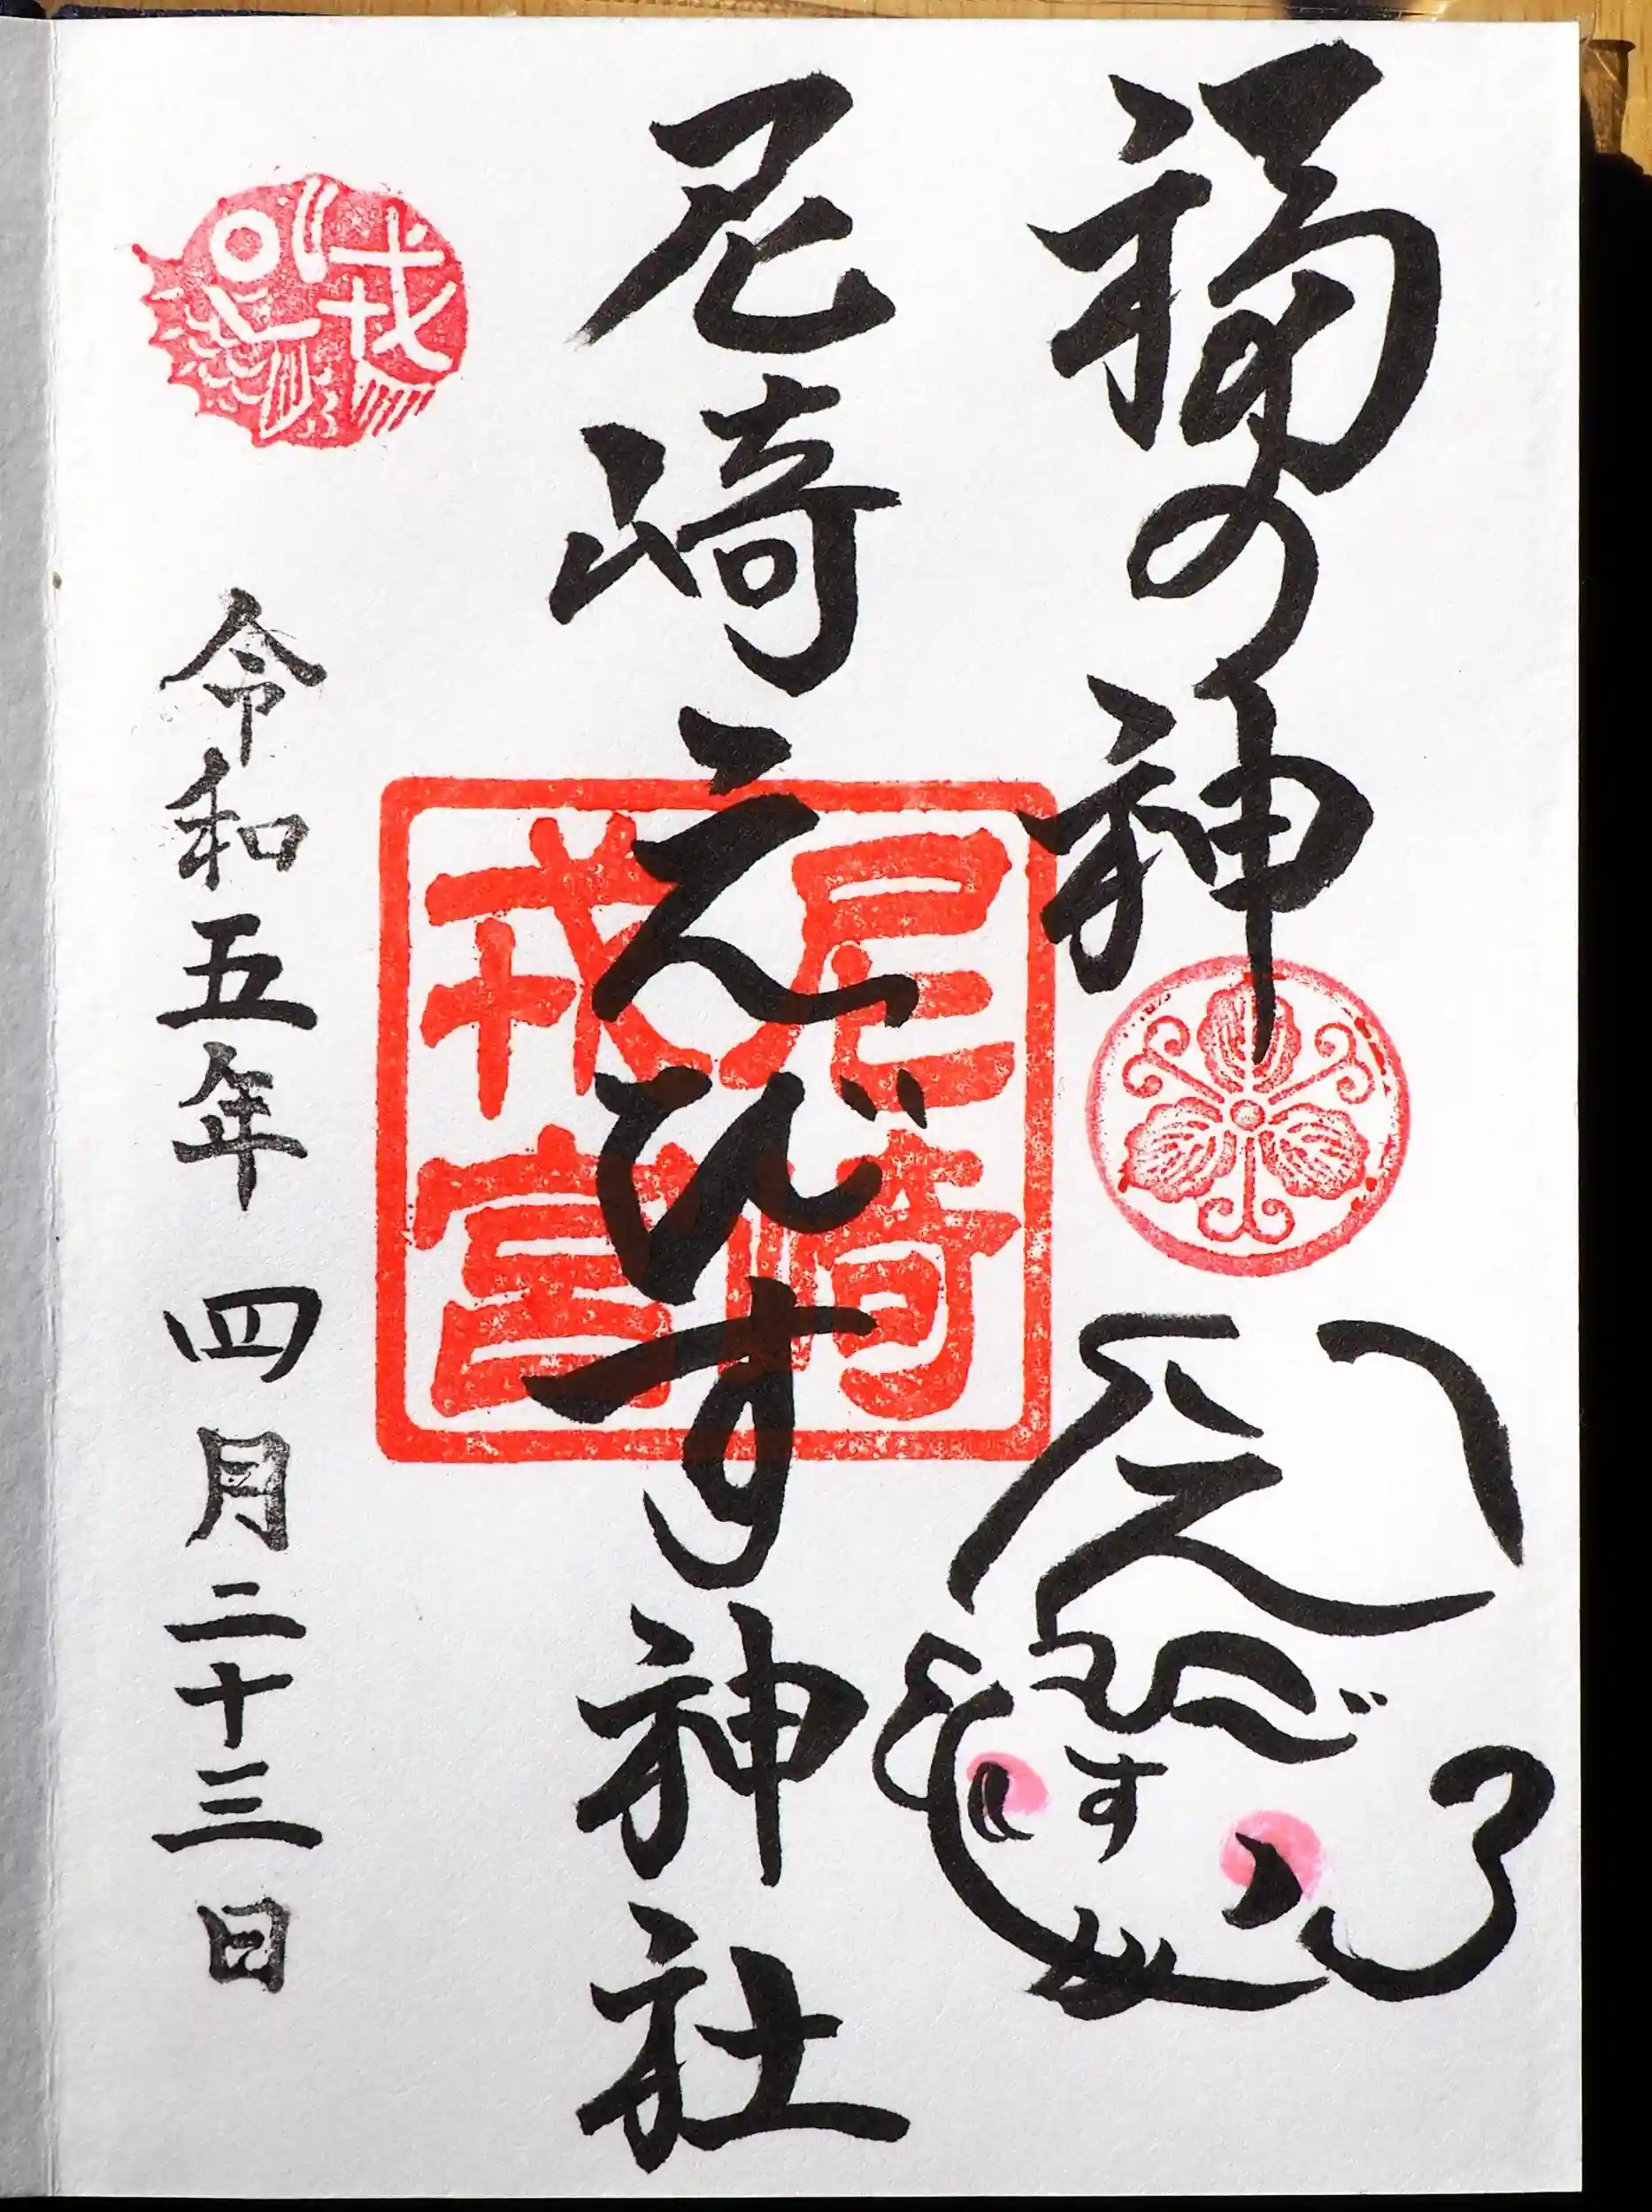 福の神
えびす
尼崎えびす神社
尼崎
戎宮
戎
令和五年 四月二十三日